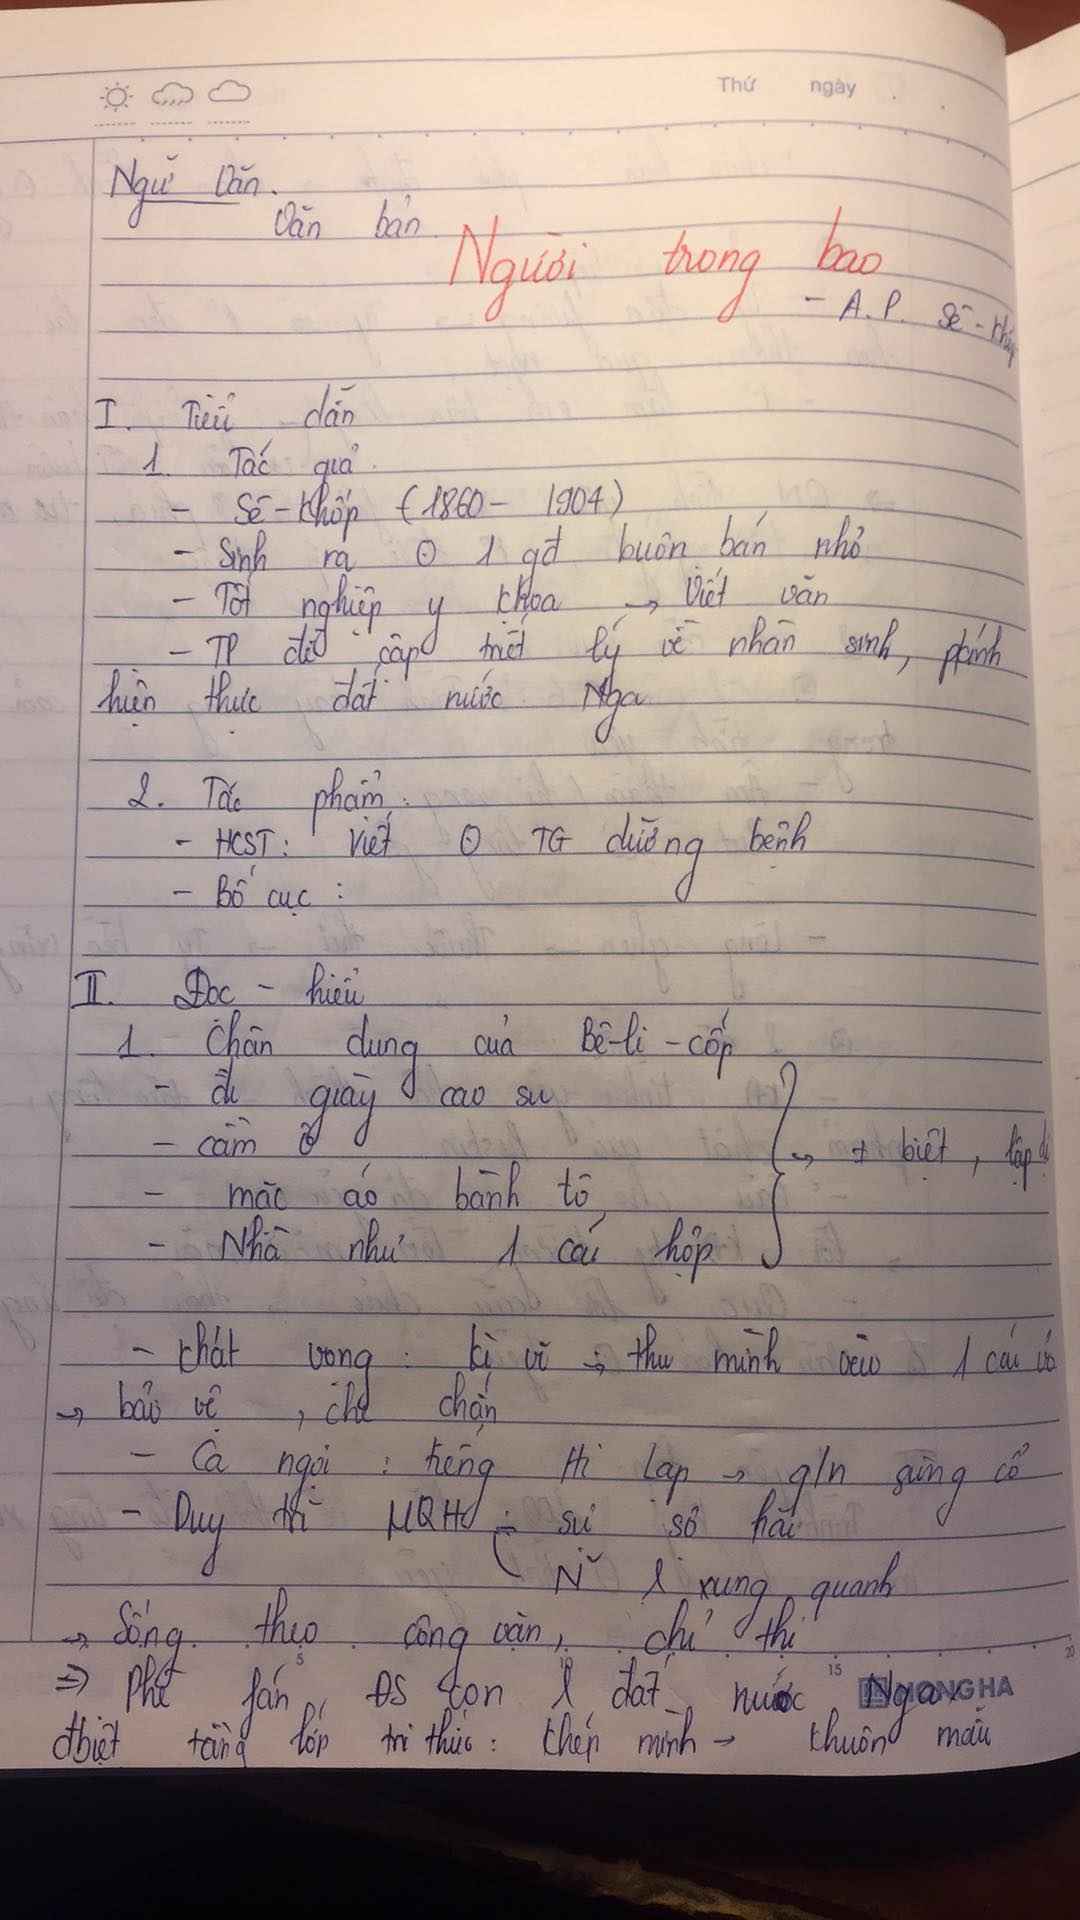 Thứ ngày
Ngữ Văn.
Văn bản
Người trong bao
- A.P. Sê-khốp
I. Tiểu dẫn
1. Tác giả.
- Sê-khốp (1860 - 1904)
- Sinh ra ⊙ 1 gđ buôn bán nhỏ
- Tốt nghiệp y khoa → Viết văn
- TP đề cập triết lý về nhân sinh, pánh
hiện thực đất nước Nga
2. Tác phẩm:
- HCST: Viết ⊙ TG dưỡng bệnh
- Bố cục:
II. Đọc - hiểu
1. Chân dung của Bê-li-cốp
- đi giày cao su
- cầm ô
- mặc áo bành tô
- Nhà như 1 cái hộp
→ # biệt, lập dị
- khát vọng: kì vĩ → thu mình vào 1 cái vỏ
→ bảo vệ, che chắn
- Ca ngợi: tiếng Hi Lạp → g/n sùng cổ
- Duy trì MQH: sự sợ hãi
N~ l xung quanh
→ Sống theo công văn, chỉ thị
⇒ phê fán ĐS con l đất nước Nga
5 10 15 20
HONG HA
đbiệt tầng lớp tri thức: khép mình → khuôn mẫu